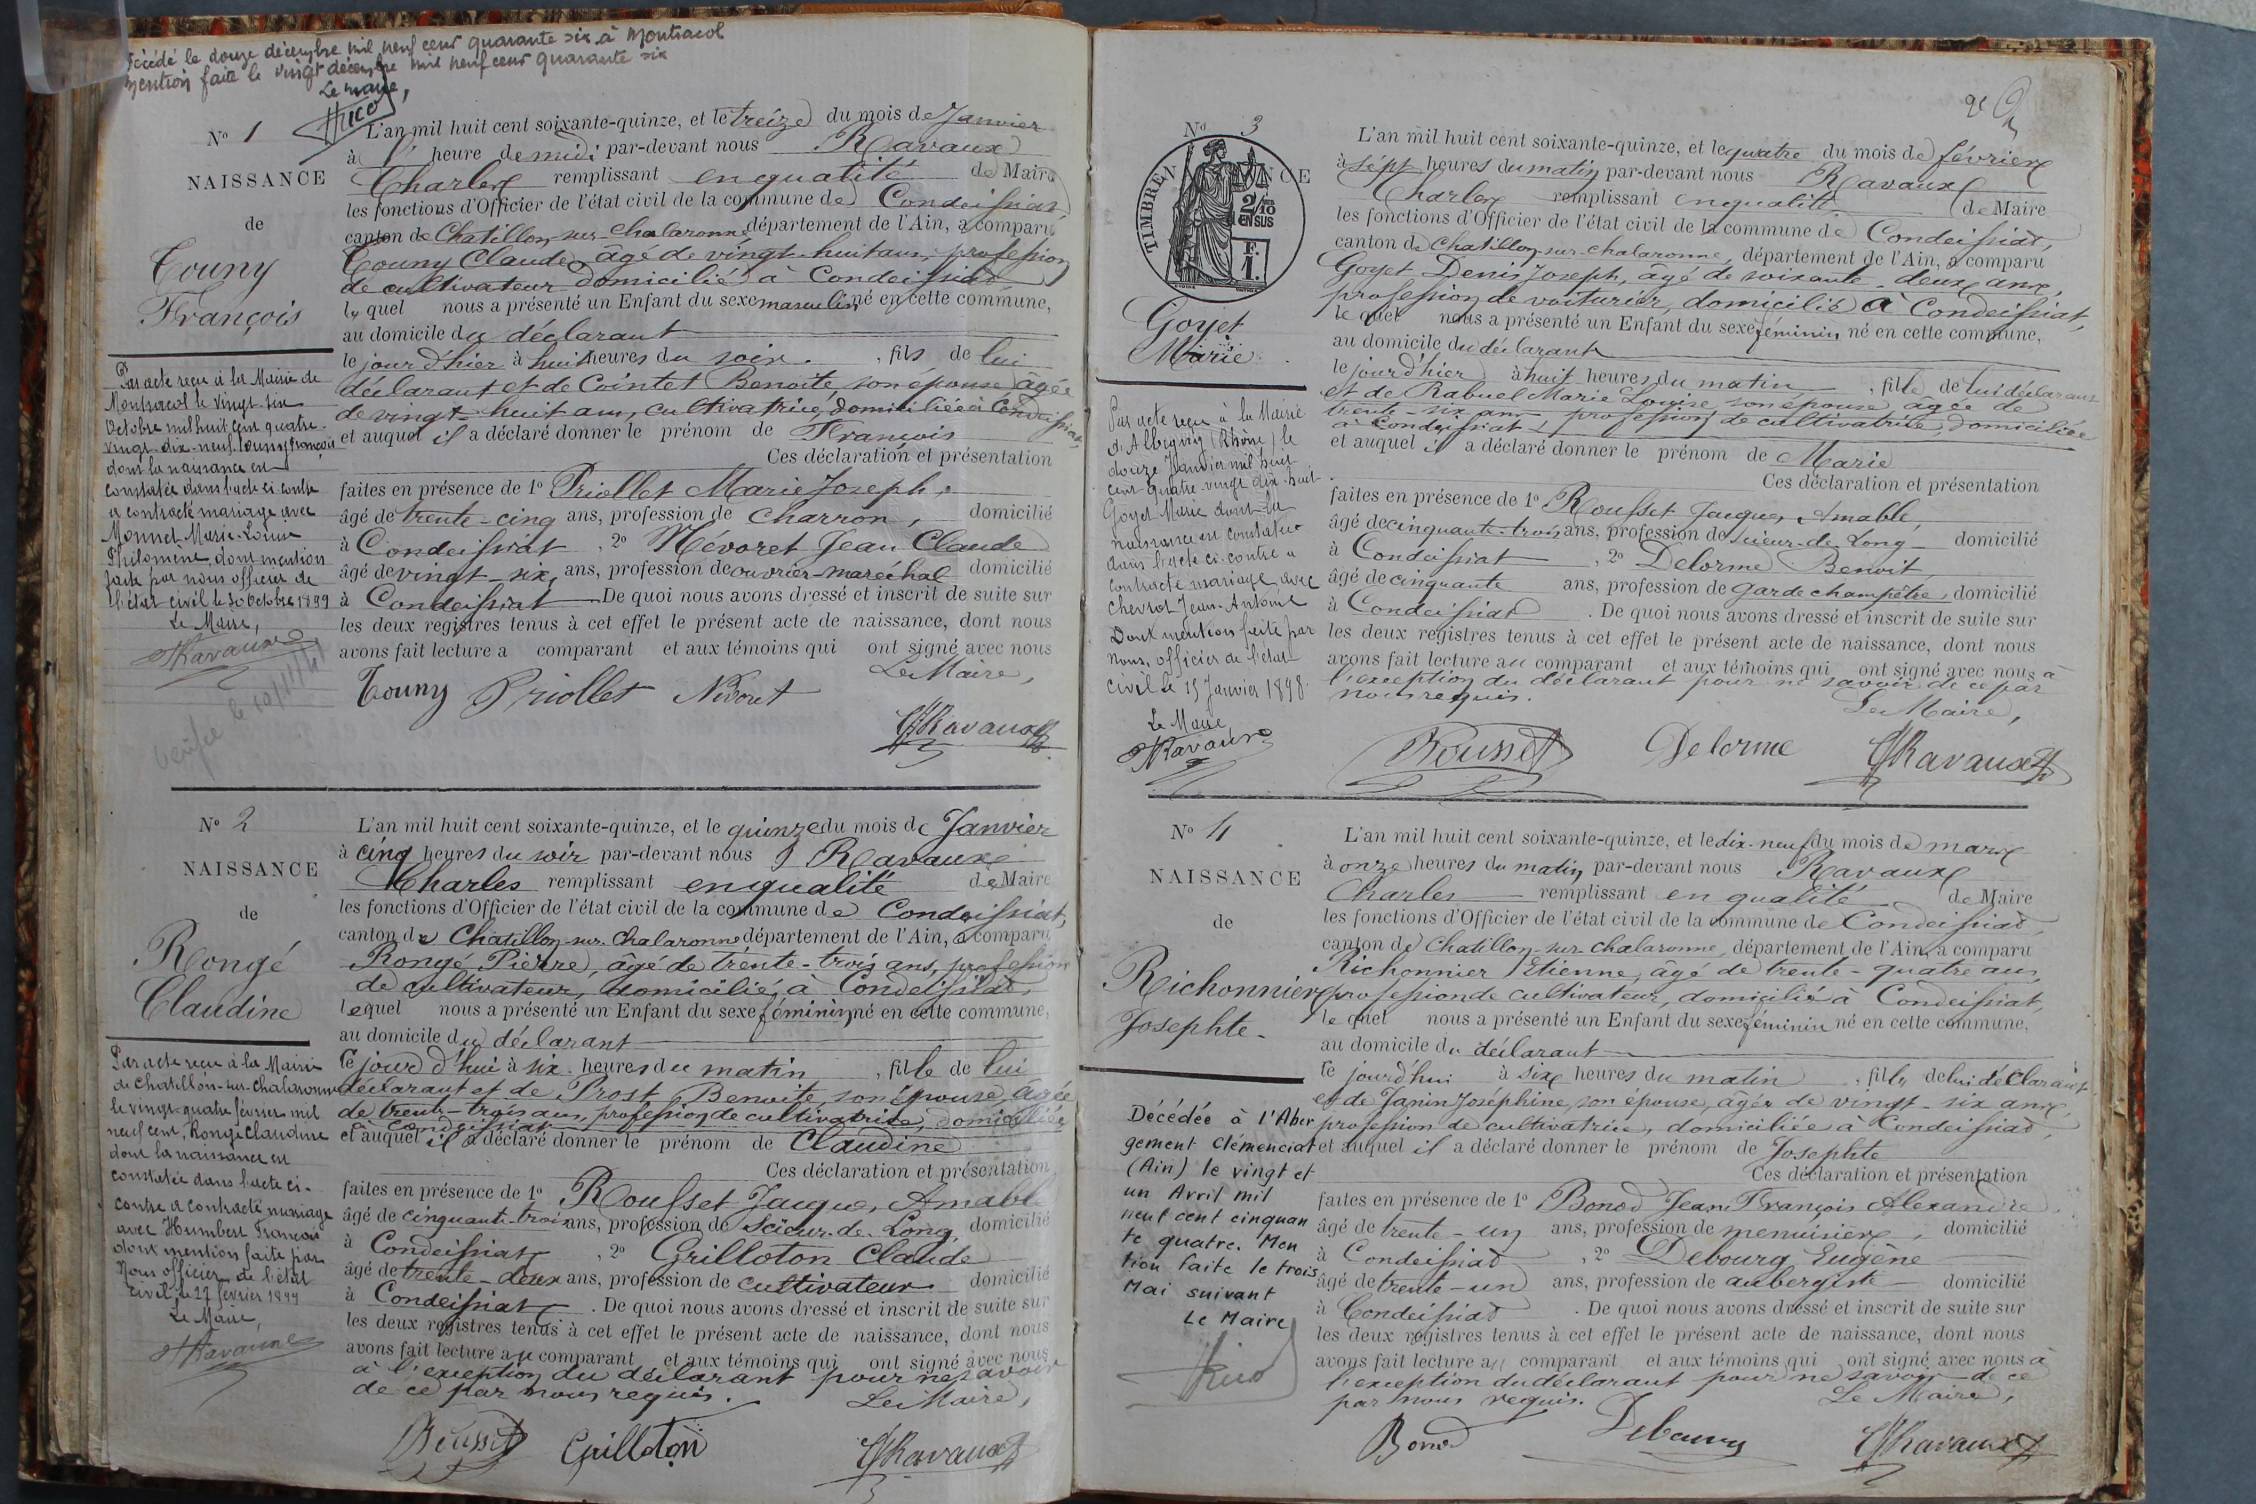 Décédé le douze décembre mil neuf cent quarante six à Montracol
mention faite le vingt décembre mil neuf cent quarante six
Le maire,
N° 1
NAISSANCE
de
Touny
François
Par acte reçu à la Mairie de
Montracol le vingt-six
Octobre mil huit cent quatre-
vingt-dix-neuf Touny François
dont la naissance est
constatée dans l'acte ci-contre
a contracté mariage avec
Monnet Marie-Louise
Philomène dont mention
faite par nous officier de
l'état civil le 30 Octobre 1899
Le Maire,
Ravaux
L'an mil huit cent soixante-quinze, et le treize du mois de Janvier
à l' heure de midi par-devant nous Ravaux
Charles remplissant en qualité de Maire
les fonctions d'Officier de l'état civil de la commune de Condeissiat,
canton de Chatillon-sur-Chalaronne, département de l'Ain, a comparu
Touny Claude, âgé de vingt-huit ans, profession
de cultivateur domicilié à Condeissiat,
lequel nous a présenté un Enfant du sexe masculin né en cette commune,
au domicile du déclarant
le jour d'hier à huit heures du soir, fils de lui
déclarant et de Cointet Benoîte, son épouse âgée
de vingt-huit ans, cultivatrice, domiciliée à Condeissiat,
et auquel il a déclaré donner le prénom de François
Ces déclaration et présentation
faites en présence de 1° Priollet Marie Joseph,
âgé de trente-cinq ans, profession de charron, domicilié
à Condeissiat, 2° Névoret Jean Claude
âgé de vingt-six, ans, profession de ouvrier-maréchal domicilié
à Condeissiat De quoi nous avons dressé et inscrit de suite sur
les deux registres tenus à cet effet le présent acte de naissance, dont nous
avons fait lecture a comparant et aux témoins qui ont signé avec nous
Le Maire,
Touny Priollet Névoret
Ravaux
N° 2
NAISSANCE
de
Rongé
Claudine
Par acte reçu à la Mairie
de Chatillon-sur-Chalaronne
le vingt-quatre février mil
neuf cent, Rongé Claudine
dont la naissance est
constatée dans l'acte ci-
contre a contracté mariage
avec Humbert François
dont mention faite par
Nous officier de l'état
civil le 27 février
Le Maire,
Ravaux
L'an mil huit cent soixante-quinze, et le quinze du mois de Janvier
à cinq heures du soir par-devant nous Ravaux
Charles remplissant en qualité de Maire
les fonctions d'Officier de l'état civil de la commune de Condeissiat,
canton de Chatillon-sur-Chalaronne département de l'Ain, a comparu
Rongé Pierre, âgé de trente-trois ans, profession
de cultivateur, domicilié à Condeissiat,
lequel nous a présenté un Enfant du sexe féminin né en cette commune,
au domicile du déclarant
le jour d'hui à six heures du matin, fille de lui
déclarant et de Prost Benoite, son épouse, âgée
de trente-trois ans, profession de cultivatrice, domiciliée
à Condeissiat
et auquel il a déclaré donner le prénom de Claudine
Ces déclaration et présentation
faites en présence de 1° Rousset Jacques Amable
âgé de cinquante-trois ans, profession de Scieur-de-Long, domicilié
à Condeissiat, 2° Grilloton Claude
âgé de trente-deux ans, profession de cultivateur domicilié
à Condeissiat. De quoi nous avons dressé et inscrit de suite sur
les deux registres tenus à cet effet le présent acte de naissance, dont nous
avons fait lecture au comparant et aux témoins qui ont signé avec nous
à l'exception du déclarant pour ne savoir
de ce par nous requis.
Le Maire,
Rousset Grilloton Ravaux
N° 3
TIMBRE
2/10 EN SUS
F. 1.
Goyet
Marie
Par acte reçu à la Mairie
d'Albigny (Rhône) le
douze Janvier mil huit
cent quatre-vingt dix-huit
Goyet Marie dont la
naissance est constatée
dans l'acte ci-contre a
contracté mariage avec
Chevrot Jean-Antoine
Dont mention faite par
Nous, officier de l'état
civil le 15 Janvier 1898
Le Maire
Ravaux
L'an mil huit cent soixante-quinze, et le quatre du mois de février
à sept heures du matin par-devant nous Ravaux
Charles remplissant en qualité de Maire
les fonctions d'Officier de l'état civil de la commune de Condeissiat,
canton de Chatillon-sur-chalaronne, département de l'Ain, a comparu
Goyet Denis Joseph, âgé de soixante-deux ans,
profession de voiturier, domicilié à Condeissiat,
lequel nous a présenté un Enfant du sexe féminin né en cette commune,
au domicile du déclarant
le jour d'hier à huit heures du matin, fille de lui déclarant
et de Rabuel Marie Louise son épouse âgée de
trente-six ans profession de cultivatrice, domiciliée
à Condeissiat
et auquel il a déclaré donner le prénom de Marie
Ces déclaration et présentation
faites en présence de 1° Rousset Jacques Amable,
âgé de cinquante-trois ans, profession de scieur-de-Long domicilié
à Condeissiat, 2° Delorme Benoit
âgé de cinquante ans, profession de garde champêtre, domicilié
à Condeissiat. De quoi nous avons dressé et inscrit de suite sur
les deux registres tenus à cet effet le présent acte de naissance, dont nous
avons fait lecture au comparant et aux témoins qui ont signé avec nous à
l'exception du déclarant pour ne savoir de ce par
nous requis.
Le Maire,
Rousset Delorme Ravaux
N° 4
NAISSANCE
de
Richonnier
Josephte
Décédée à l'Aber
gement Clémenciat
(Ain) le vingt et
un Avril mil
neuf cent cinquan
te quatre. Men
tion faite le trois
Mai suivant
Le Maire
L'an mil huit cent soixante-quinze, et le dix-neuf du mois de mars
à onze heures du matin par-devant nous Ravaux
Charles remplissant en qualité de Maire
les fonctions d'Officier de l'état civil de la commune de Condeissiat,
canton de Chatillon-sur-chalaronne, département de l'Ain, a comparu
Richonnier Etienne, âgé de trente-quatre ans,
profession de cultivateur, domicilié à Condeissiat,
lequel nous a présenté un Enfant du sexe féminin né en cette commune,
au domicile du déclarant
le jourd'hui à six heures du matin, fille de lui déclarant
et de Janin Joséphine, son épouse, âgée de vingt-six ans,
profession de cultivatrice, domiciliée à Condeissiat,
et auquel il a déclaré donner le prénom de Josephte
Ces déclaration et présentation
faites en présence de 1° Bonod Jean François Alexandre
âgé de trente-un ans, profession de menuisier, domicilié
à Condeissiat, 2° Debourg Eugène
âgé de trente-un ans, profession de aubergiste domicilié
à Condeissiat. De quoi nous avons dressé et inscrit de suite sur
les deux registres tenus à cet effet le présent acte de naissance, dont nous
avons fait lecture au comparant et aux témoins qui ont signé avec nous à
l'exception du déclarant pour ne savoir de ce
par nous requis.
Le Maire,
Bonod Debourg Ravaux